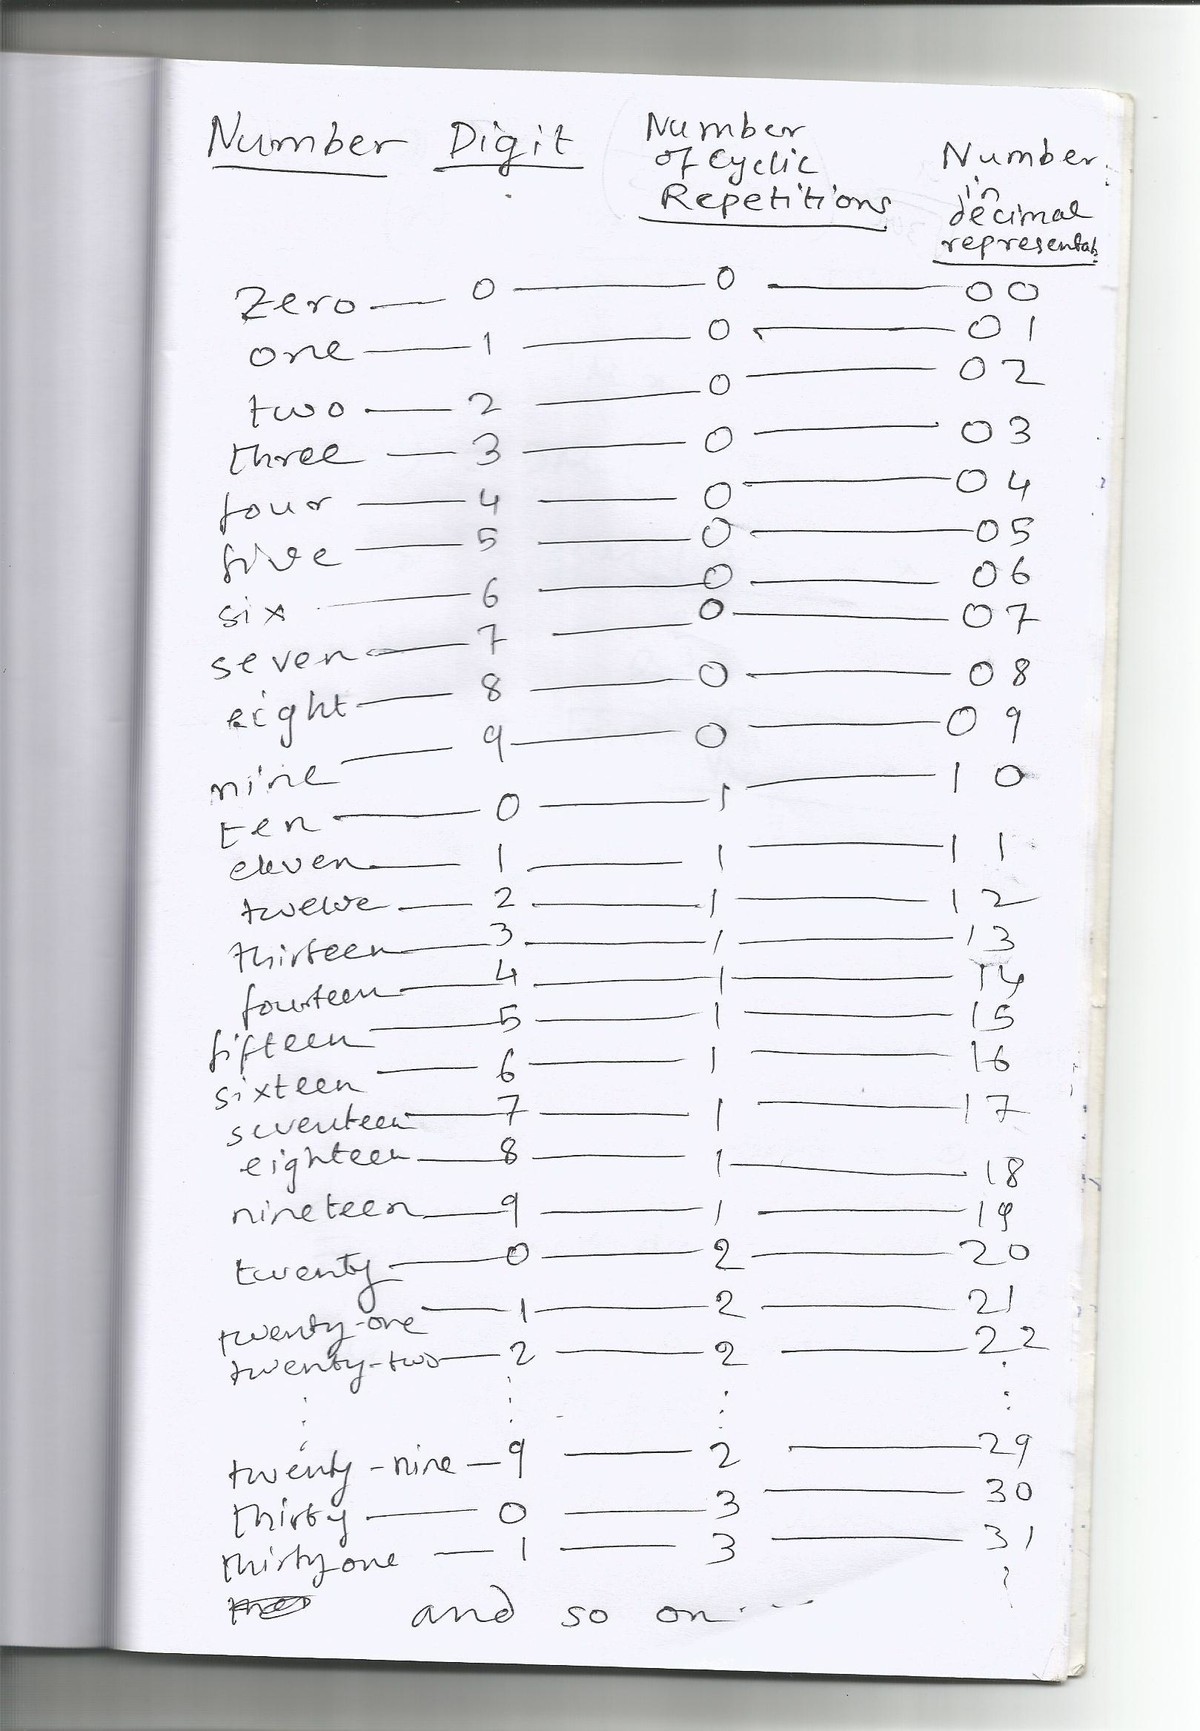 Number Digit Number of Cyclic Repetitions Number in decimal representab
Zero — 0 — 0 — 00
one — 1 — 0 — 01
two — 2 — 0 — 02
three — 3 — 0 — 03
four — 4 — 0 — 04
five — 5 — 0 — 05
six — 6 — 0 — 06
seven — 7 — 0 — 07
eight — 8 — 0 — 08
nine — 9 — 0 — 09
ten — 0 — 1 — 10
eleven — 1 — 1 — 11
twelve — 2 — 1 — 12
thirteen — 3 — 1 — 13
fourteen — 4 — 1 — 14
fifteen — 5 — 1 — 15
sixteen — 6 — 1 — 16
seventeen — 7 — 1 — 17
eighteen — 8 — 1 — 18
nineteen — 9 — 1 — 19
twenty — 0 — 2 — 20
twenty-one — 1 — 2 — 21
twenty-two — 2 — 2 — 22
⋮ ⋮ ⋮ ⋮
twenty-nine — 9 — 2 — 29
thirty — 0 — 3 — 30
thirty one — 1 — 3 — 31
and so on ....